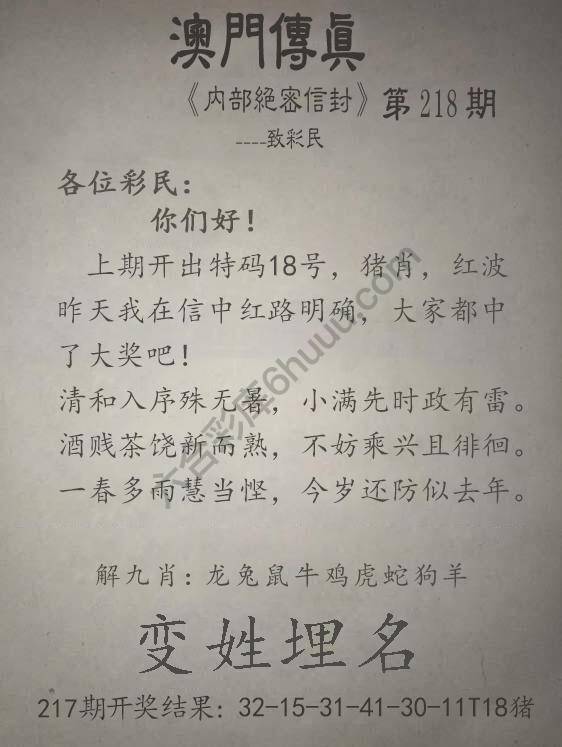 澳門傳眞
《内部絕密信封》第218期
----致彩民
各位彩民：
你们好！
上期开出特码18号，猪肖，红波
昨天我在信中红路明确，大家都中
了大奖吧！
清和入序殊无暑，小满先时政有雷。
酒贱茶饶新而熟，不妨乘兴且徘徊。
一春多雨慧当悭，今岁还防似去年。
解九肖：龙兔鼠牛鸡虎蛇狗羊
变姓埋名
217期开奖结果：32-15-31-41-30-11T18猪
六合彩库6huuu.com